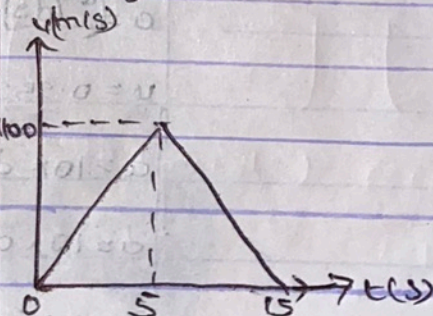 v(m/s)
100
0 5 15 t(s)